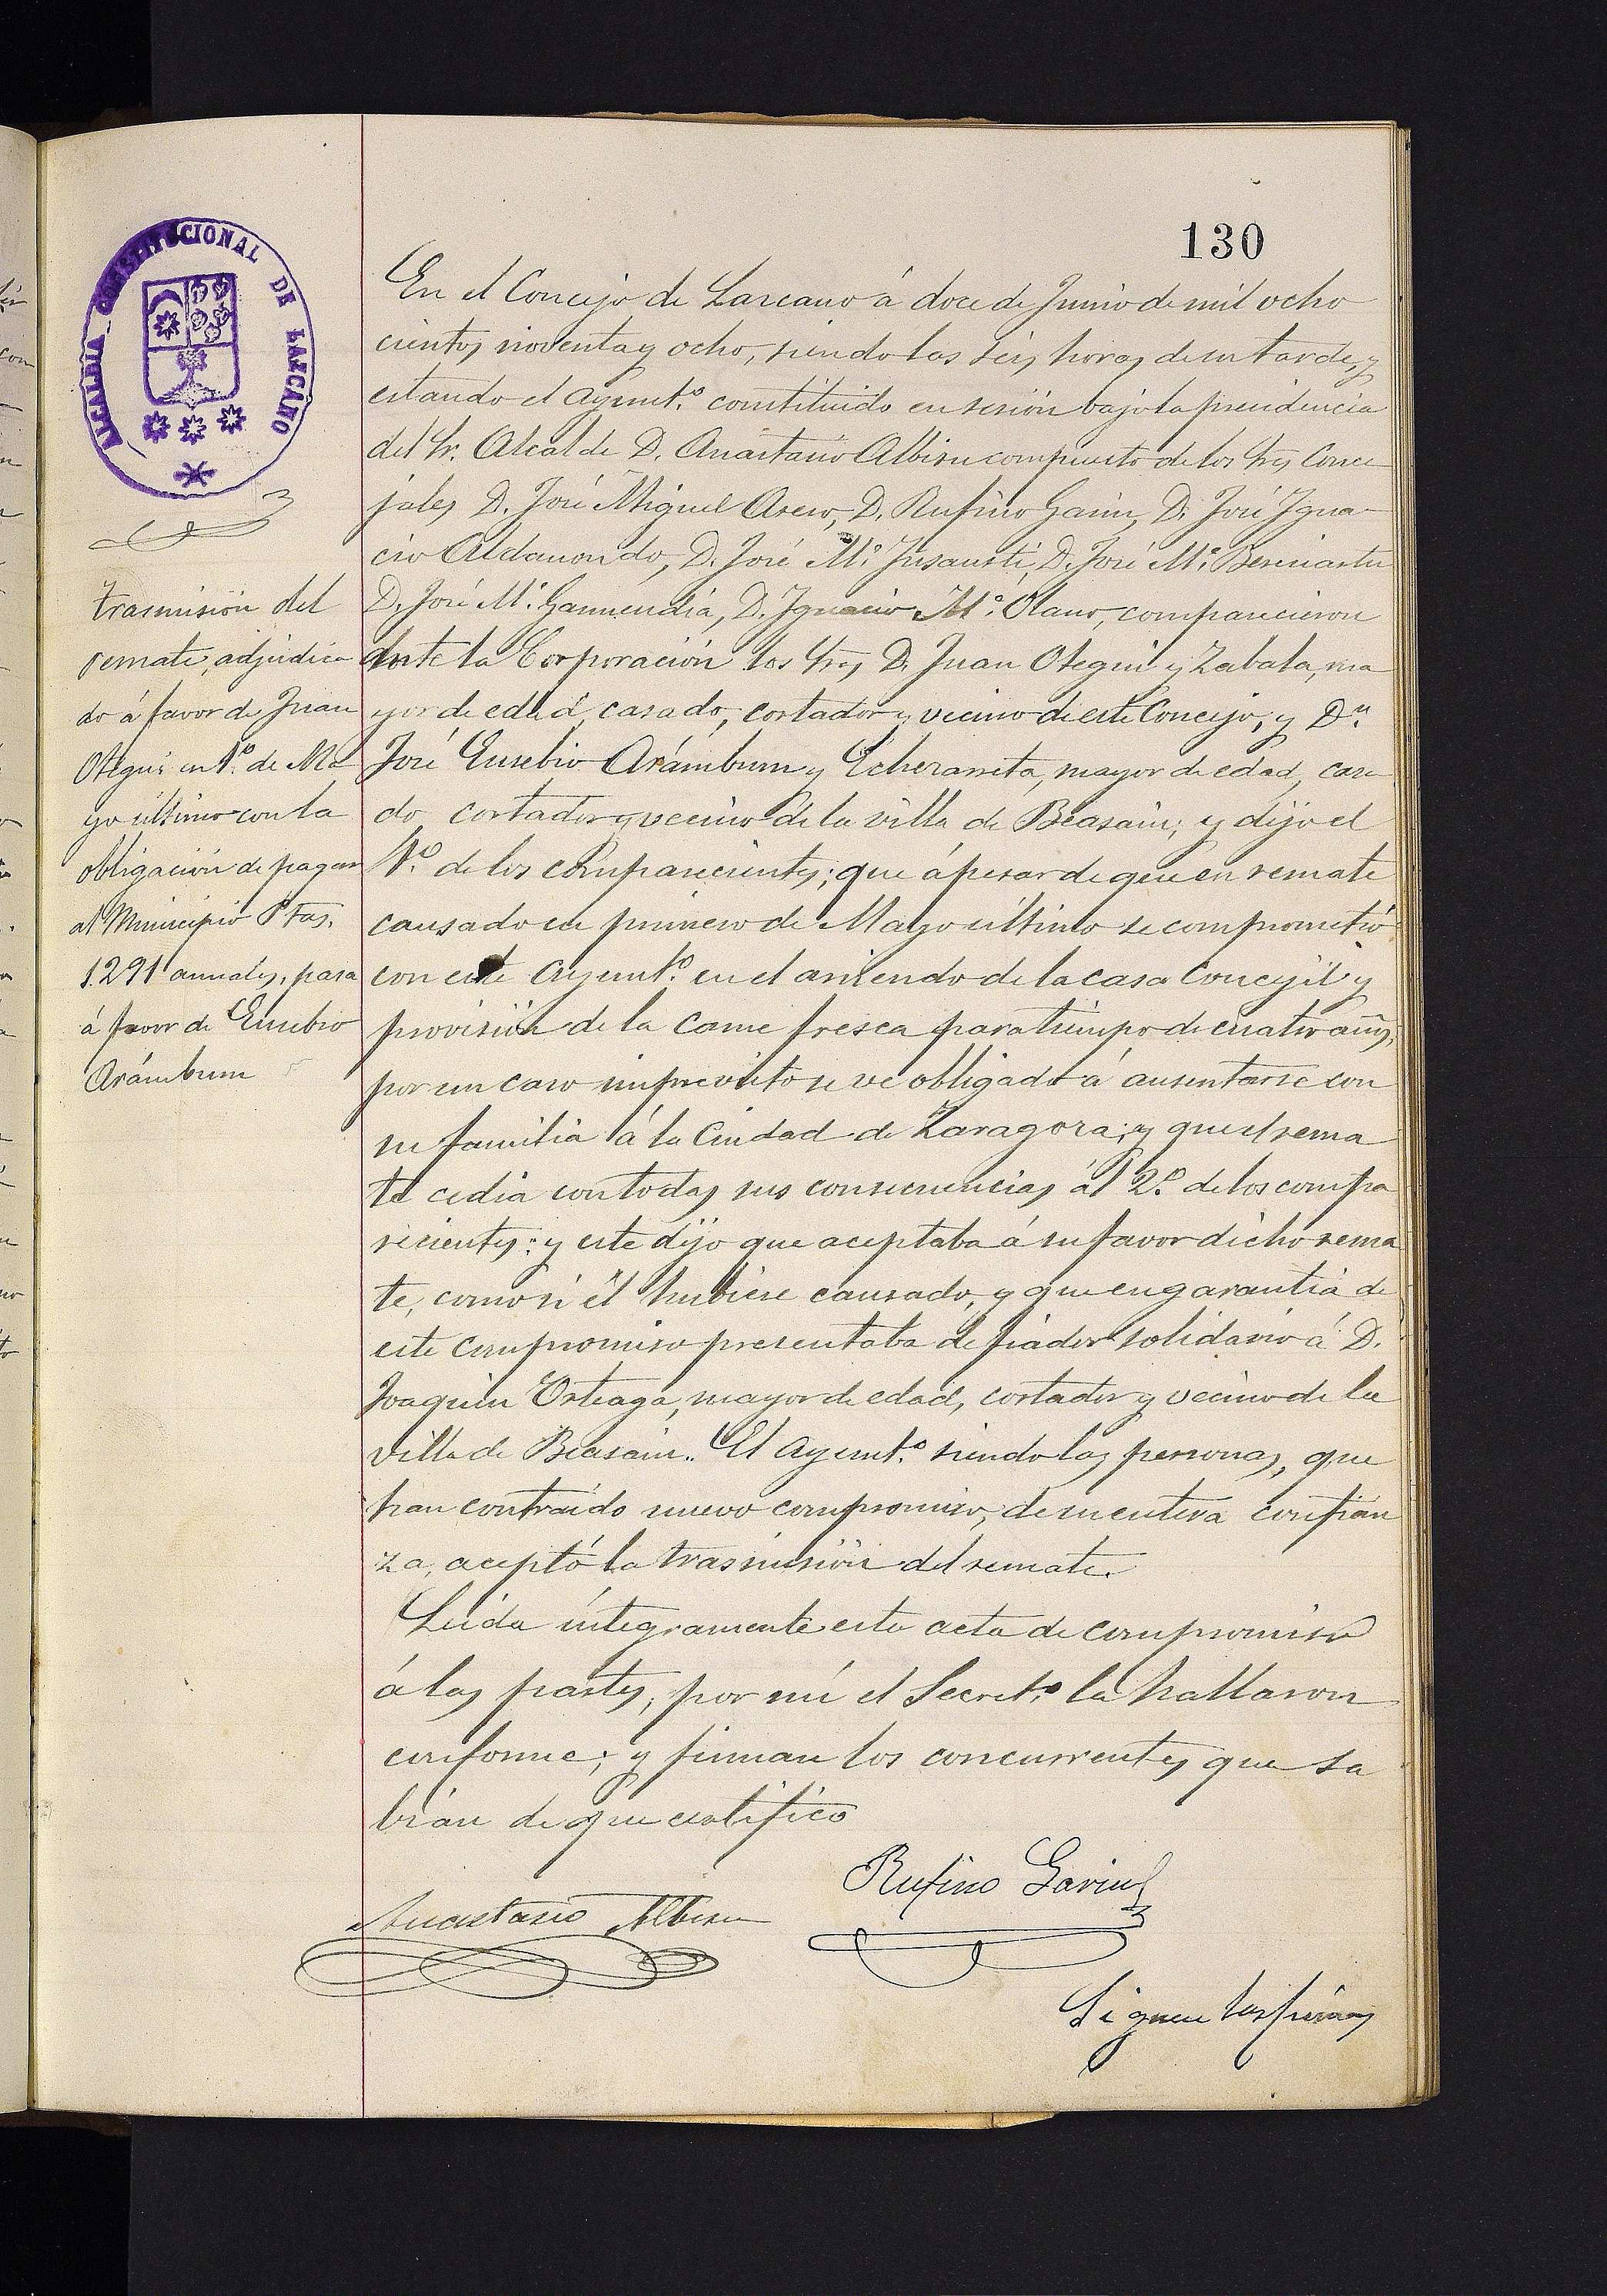 130
ALCALDIA CONSTITUCIONAL DE LAZCANO
trasmisión del
remate, adjudica
do á favor de Juan
Otegui en 1º. de Ma
yo último con la
obligación de pagar
al Municipio Ptas.
1.291 anuales, pasa
á favor de Eusebio
Arámburu
En el Concejo de Lazcano á doce de Junio de mil ocho
cientos noventa y ocho, siendo las seis horas de su tarde, y
estando el Ayumt.º constituido en sesión bajo la presidencia
del Sr. Alcalde D. Anastasio Albisu compuesto de los Sres Conce
jales D. José Miguel D. Rufino Garin, D. José Igna-
cio Aldanondo, D. José M.ª Jusausti, D. José M.ª
D. José M.ª Garmendia, D. Ignacio M.ª Olano, comparecieron
ante la Corporación los Sres D. Juan Otegui y Zabala, ma
yor de edad, casado, cortador y vecino de este Concejo, y Dn.
José Eusebio Arámburu y Echezarreta, mayor de edad, casa
do cortador y vecino de la villa de Beasain; y dijo el
1.º de los comparecientes; que á pesar de que en remate
causado en primero de Mayo último se comprometió
con este Ayumt.º en el arriendo de la casa Concejil y
provisión de la carne fresca para tiempo de cuatro años,
por un caso imprevisto se ve obligado á ausentarse con
su familia á la Ciudad de Zaragoza; y que el rema
te cedia con todas sus consecuencias ál 2.º de los compa
recientes: y este dijo que aceptaba á su favor dicho rema
te, como si él hubiese causado, y que en garantia de
este compromiso presentaba de fiador solidario á D.
Joaquin Osteaga, mayor de edad, cortador y vecino de la
villa de Beasain.. El Ayumt.º siendo las personas, que
han contraido nuevo compromiso, de su entera confian
za, aceptó la trasmisión del remate.
Leida íntegramente esta acta de compromiso
á las partes, por mí el Secret.º la hallaron
conforme; y firman los concurrentes que sa
bían de que certifico
Rufino Garin
Anastasio Albisu
Siguen las firmas